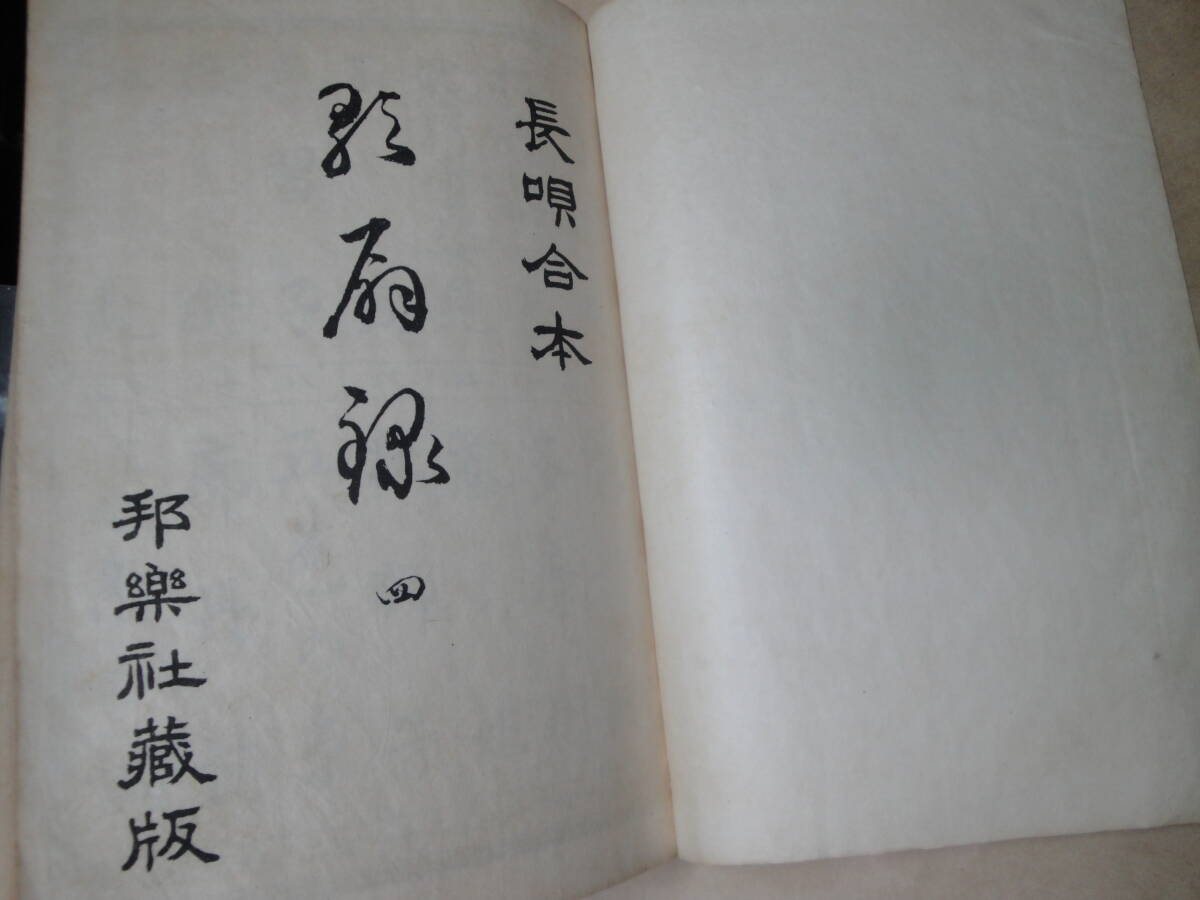 長唄合本
歌扇録 四
邦樂社藏版